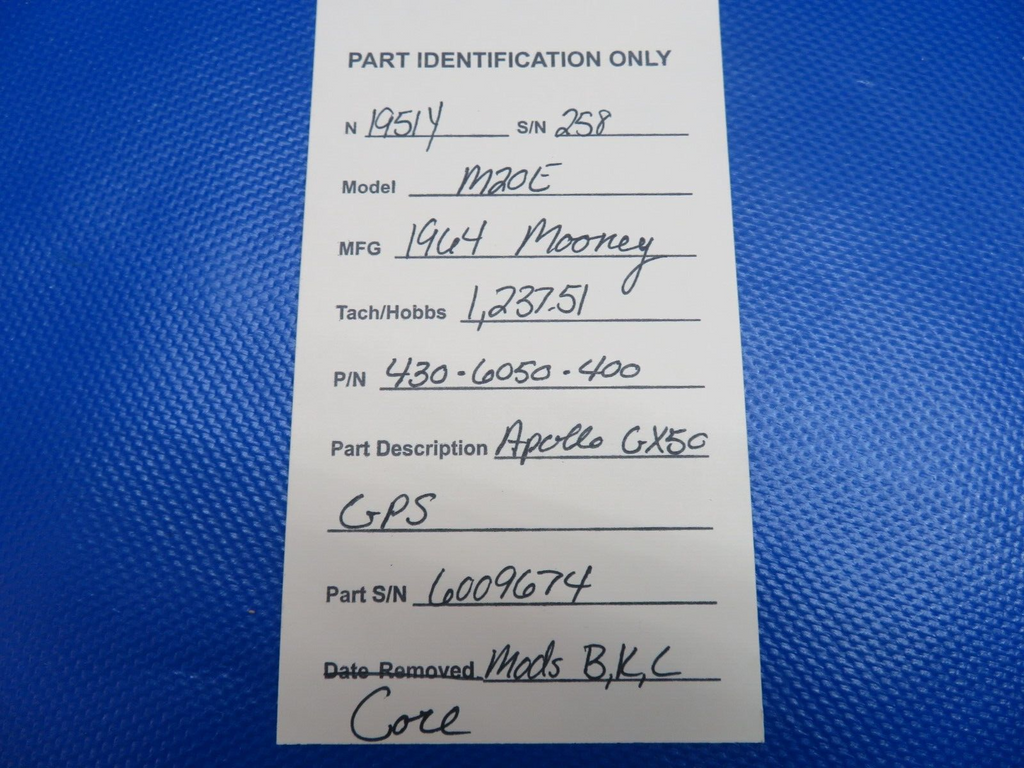 PART IDENTIFICATION ONLY
N 1951Y S/N 258
Model M20E
MFG 1964 Mooney
Tach/Hobbs 1,237.51
P/N 430-6050-400
Part Description Apollo GX50
GPS
Part S/N 6009674
Date Removed Mods B,K,C
Core